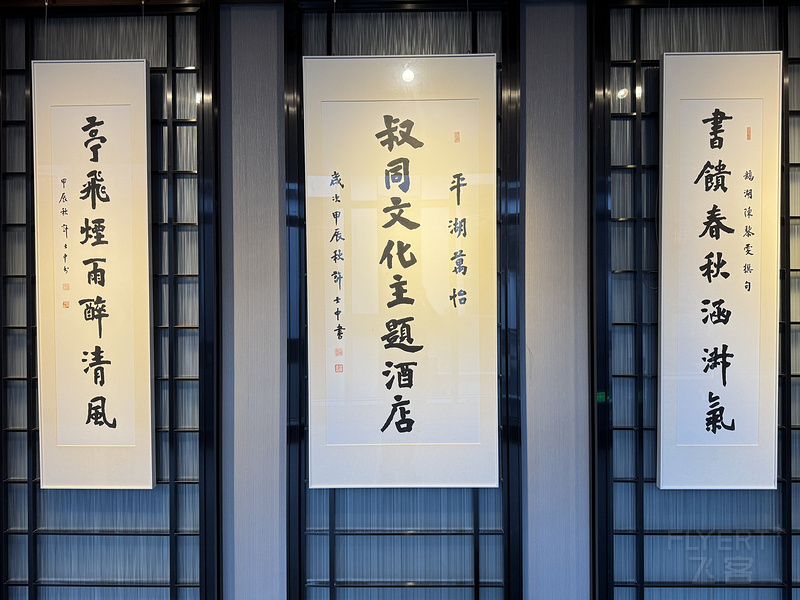 湖陳黎雯撰句
書饋春秋涵氣
平湖萬怡
叔同文化主題酒店
歲次甲辰秋許士中書
亭飛煙雨醉清風
甲辰秋許士中書
FLYERT
飞客